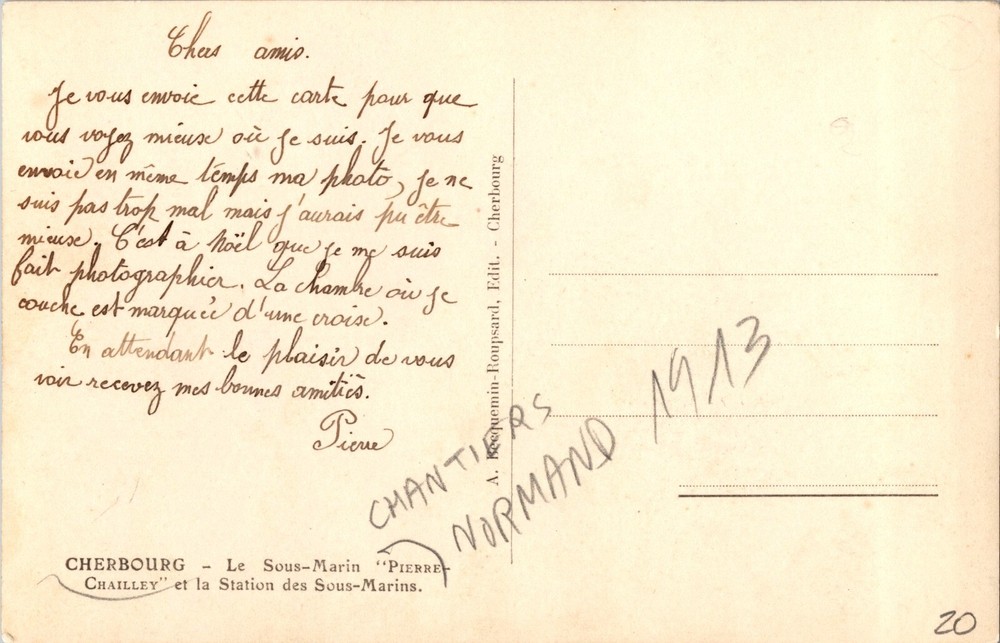 Chers amis.
Je vous envoie cette carte pour que
vous voyez mieux où je suis. Je vous
envoie en même temps ma photo, je ne
suis pas trop mal mais j'aurais pu être
mieux. C'est à Noël que je me suis
fait photographier. La chambre où je
couche est marquée d'une croix.
En attendant le plaisir de vous
voir recevez mes bonnes amitiés.
Pierre
CHERBOURG - Le Sous-Marin "PIERRE-
CHAILLEY" et la Station des Sous-Marins.
A. Becquemin-Roupsard, Edit. - Cherbourg
CHANTIERS
NORMAND 1913
20